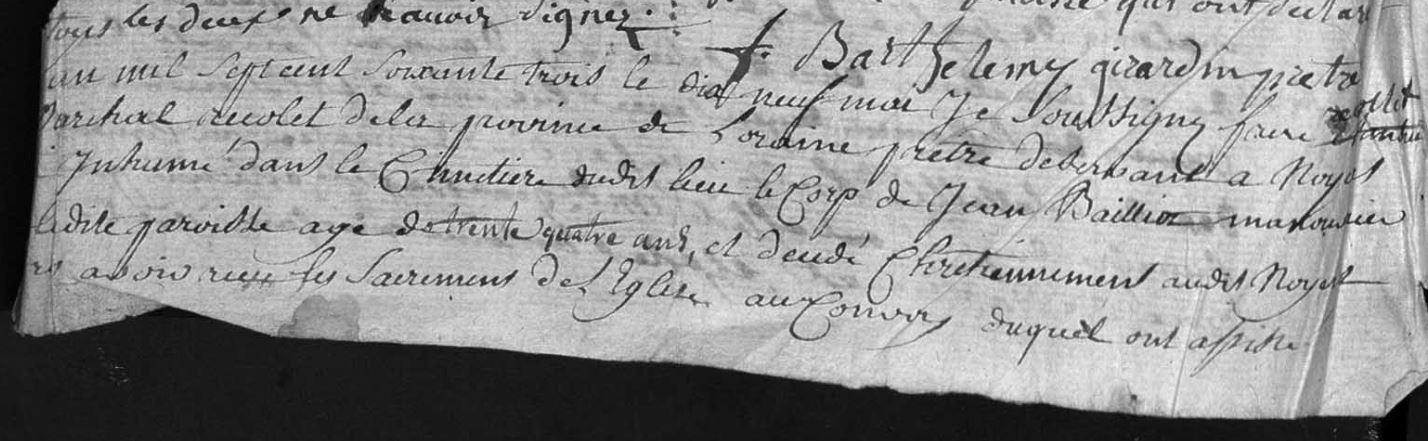 tous les deux ne scavoir signer. qui ont declar
f. Barthelemy girardin pretre
an mil sept cent soixante trois le dix neuf mai Je soussigné frere
Marchal recolet de la province de Loraine pretre deservant a Noyes
Inhumé dans le Cimetiere dudit lieu le Corp de Jean Bailliot manouvrier
ladite paroisse agé de trente quatre ans, et decedé Chretiennement audit Noyes
avoir reçu les Sacremens de l'Eglise au Convoy duquel ont assisté